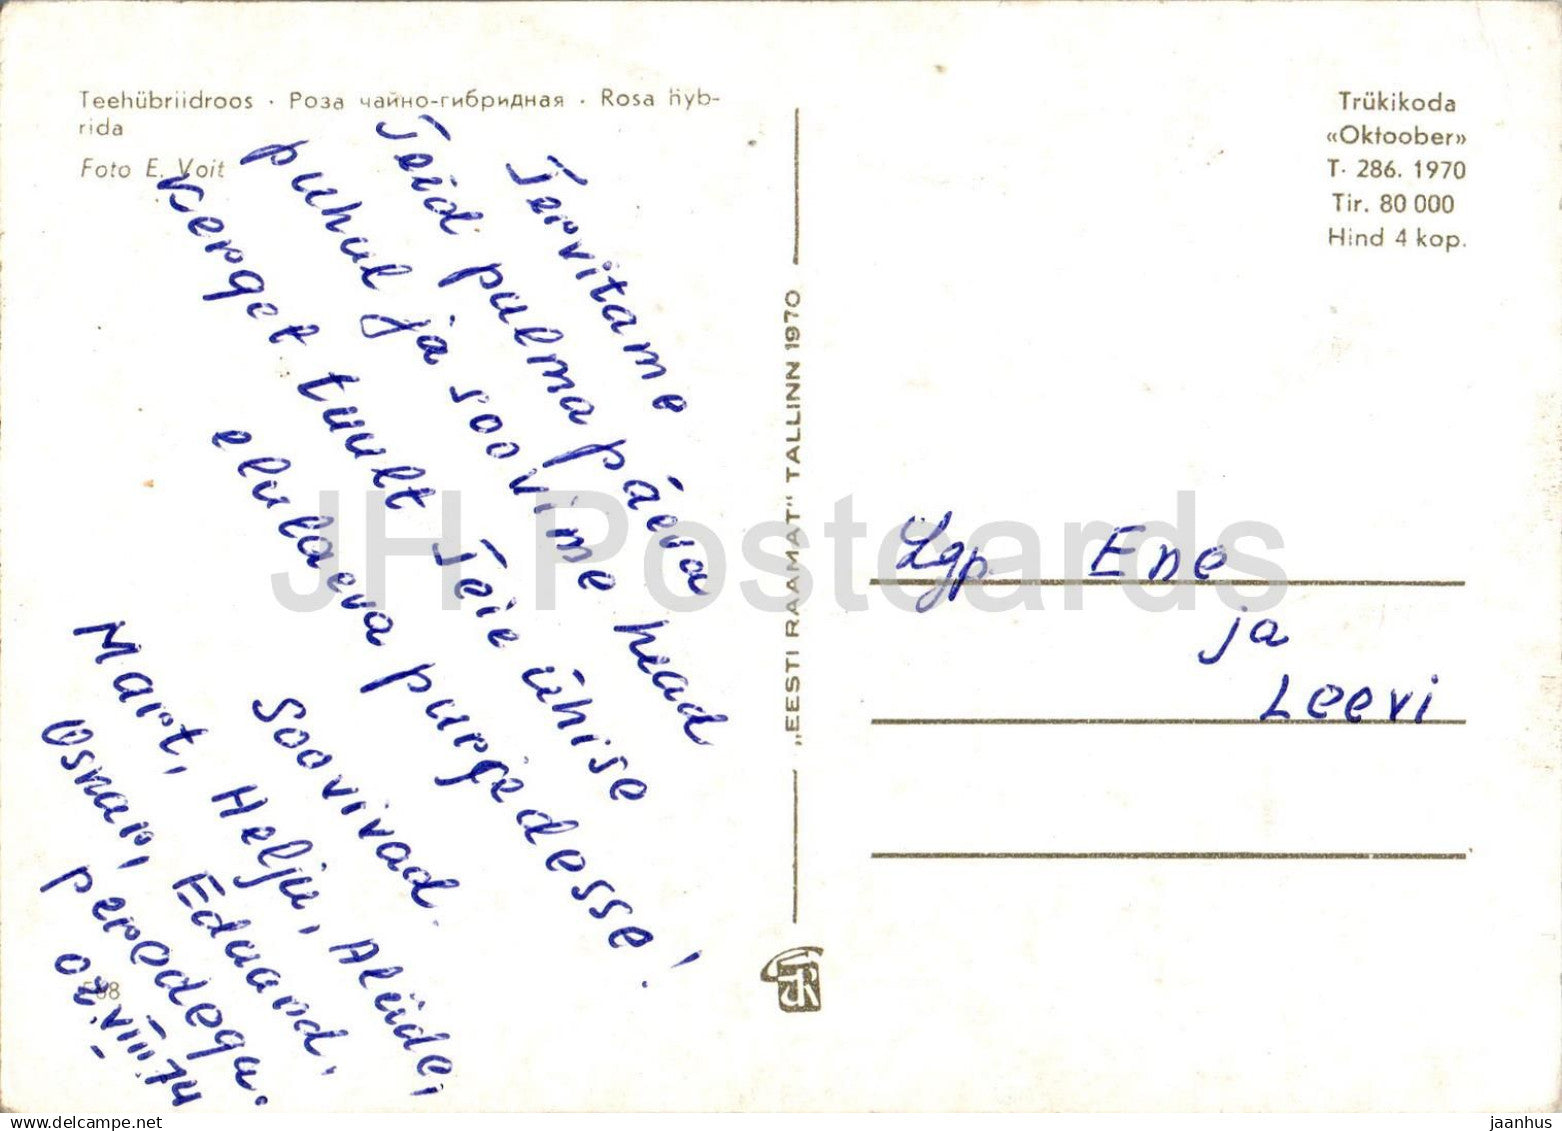 Teehübriidroos · Роза чайно-гибридная · Rosa hyb-
rida
Foto E. Voit
Trükikoda
«Oktoober»
T· 286. 1970
Tir. 80 000
Hind 4 kop.
Tervitame
Teid pulma päeva
puhul ja soovime head
kerget tuult Teie ühise
elulaeva purjedesse!
Soovivad.
Mart, Helju, Aliide,
Oskar, Eduard,
peredega.
VIII 74
„EESTI RAAMAT“ TALLINN 1970
Lgp Ene
ja
Leevi
JH Postcards
jaanhus